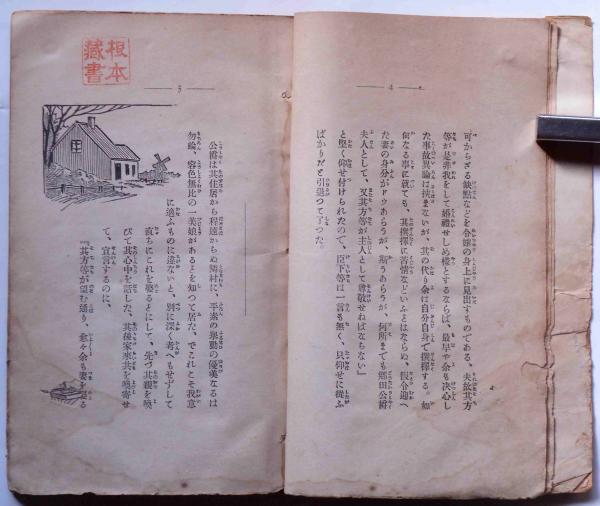 — 4 —
可からざる缺點などを令孃の身上に見出すものである、夫故其方
等が是非我をして婚禮せしめ樣とするならば、最早や余も决心し
た事故異論は挾まないが、其の代り余は自分自身で撰擇する。如
何なる事に就ても、其撰擇に苦情などいふとはならぬ、假令迎へ
た妻の身分がドウあらうが、斯うあらうが、何所までも鄕田公爵
夫人として、又其方等が主人として尊敬せねばならない」
と堅く仰せ付けられたので、臣下等は一言も無く、只仰せに從ふ
ばかりだと引退つて了つた。
— 5 —
根本
藏書
公爵は其住居から程遠からぬ隣村に、平素の擧動の優美なるは
勿論、容色無比の一美娘があるとを知つて居た、でこれこそ我意
に適ふものに違ないと、別に深く考へもせずして
直ちにこれを娶るとにして、先づ其親を喚
びて其心中を話した、其後家來共を喚寄せ
て、宣言するのに、
『其方等が望む通り、愈々余も妻を娶る